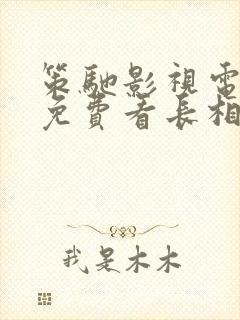 策馳影視電
免費看長相
我是木木